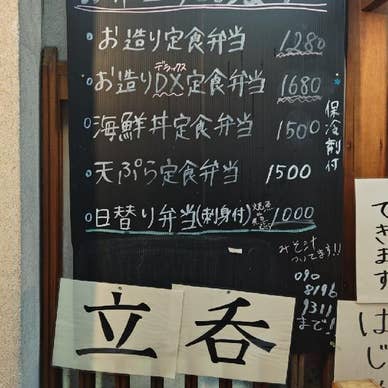 お造り定食弁当 1280
お造りDX定食弁当 1680
デラックス
海鮮丼定食弁当 1500
天ぷら定食弁当 1500
日替り弁当(刺身付) 1000
保冷剤付
みそ汁
ついてます!!
090
8196
9311
まで!
立呑
できます
はじ